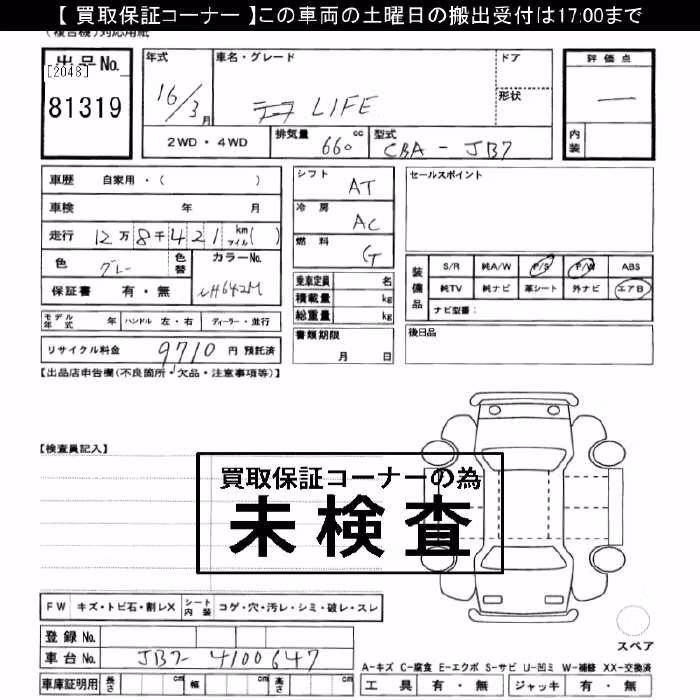 【 買取保証コーナー 】この車両の土曜日の搬出受付は17:00まで
(複合機)対応用紙
出品No.
[2048]
81319
年式
16/3月
車名・グレード
LIFE
ドア
形状
2WD・4WD
排気量 660 cc
型式 CBA - JB7
評価点
―
内装
車歴 自家用・( )
車検 年 月
走行 12万8千421 km マイル( )
色 グレー 色替 カラーNo.
保証書 有・無 NH642M
モデル年式 年 ハンドル 左・右 ディーラー・並行
リサイクル料金 9710 円 預託済
シフト AT
冷房 AC
燃料 G
乗車定員 名
積載量 kg
総重量 kg
書類期限
月 日
セールスポイント
装備品
S/R 純A/W P/S P/W ABS
純TV 純ナビ 革シート 外ナビ エアB
ナビ型番:
後日品
【出品店申告欄(不良箇所・欠品・注意事項等)】
【検査員記入】
買取保証コーナーの為
未検査
FW キズ・トビ石・割レX シート内装 コゲ・穴・汚レ・シミ・破レ・スレ
登録No.
車台No. JB7-4100647
車庫証明用 長さ cm 幅 cm 高さ cm
スペア
A-キズ C-腐食 E-エクボ S-サビ U-凹ミ W-補修 XX-交換済
工具 有・無 ジャッキ 有・無